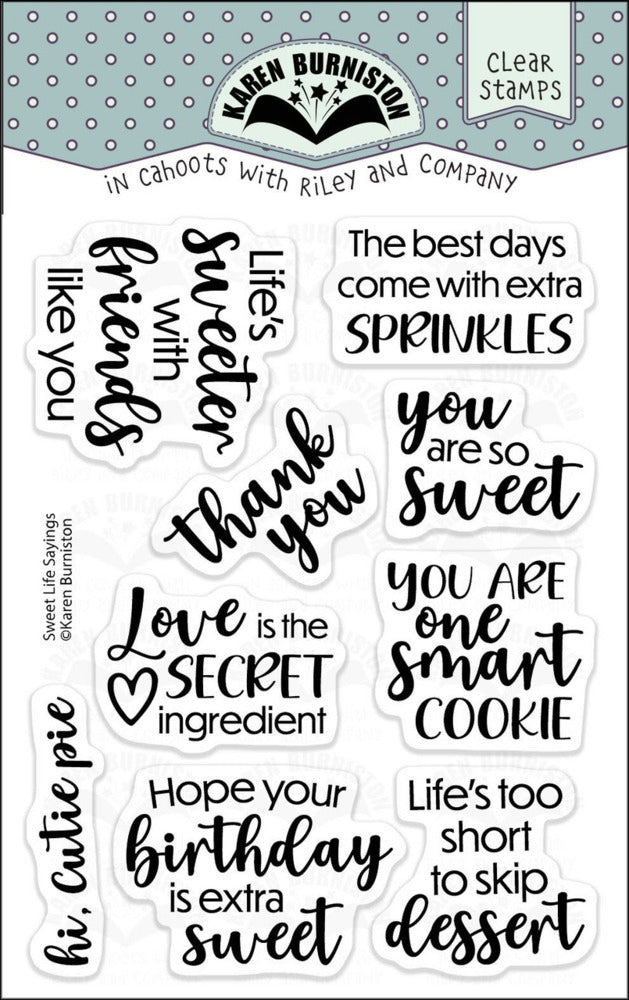 KAREN BURNISTON
CLEAR
STAMPS
in cahoots with RiLey and Company
Life's
sweeter
with
friends
like you
The best days
come with extra
SPRINKLES
you
are so
sweet
thank
you
Sweet Life Sayings
©Karen Burniston
Love is the
SECRET
ingredient
YOU ARE
one
smart
COOKIE
hi, cutie pie
Hope your
birthday
is extra
sweet
Life's too
short
to skip
dessert